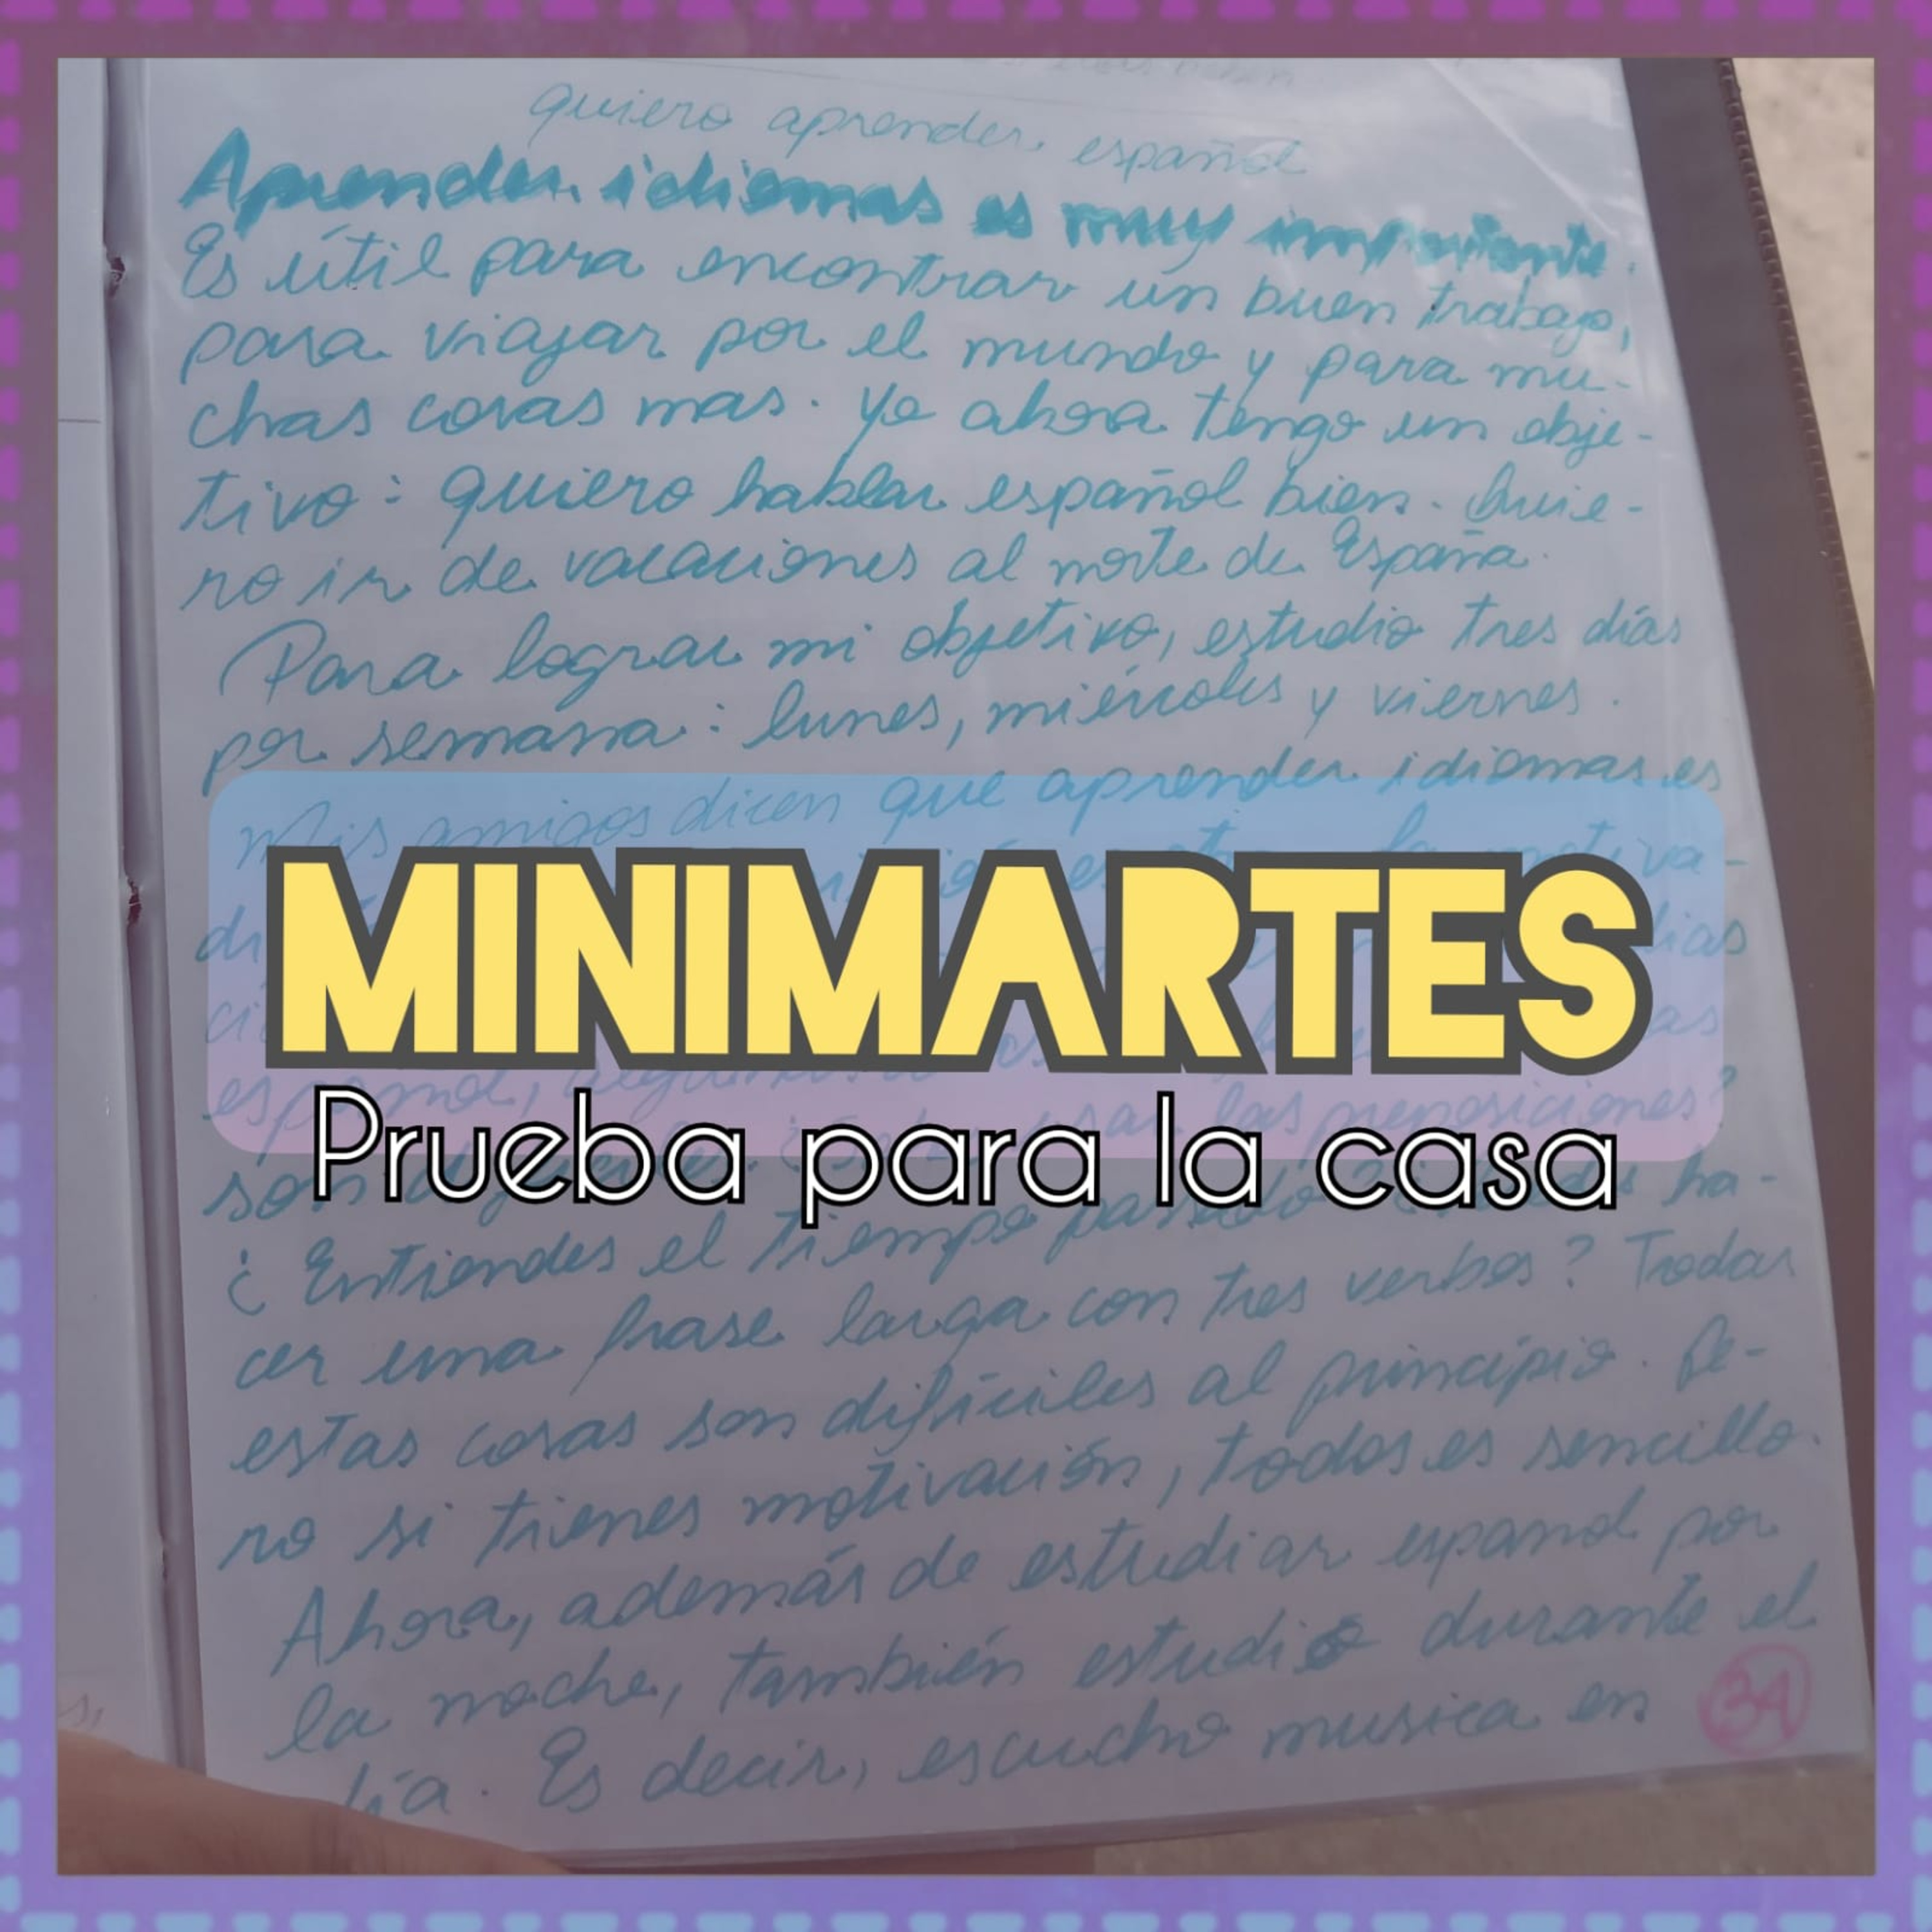 quiero aprender español
Aprender idiomas es muy importante.
Es útil para encontrar un buen trabajo,
para viajar por el mundo y para mu-
chas cosas mas. Yo ahora tengo un obje-
tivo: quiero hablar español bien. Quie-
ro ir de vacaciones al norte de España.
Para lograr mi objetivo, estudio tres días
por semana: lunes, miércoles y viernes.
Mis amigos dicen que aprender idiomas es
MINIMARTES
Prueba para la casa
las preposiciones?
¿Entiendes el tiempo pasado? ha-
cer una frase larga con tres verbos? Todas
estas cosas son difíciles al principio. Pe-
ro si tienes motivación, todos es sencillo.
Ahora, además de estudiar español por
la noche, también estudio durante el
día. Es decir, escucho musica en
34